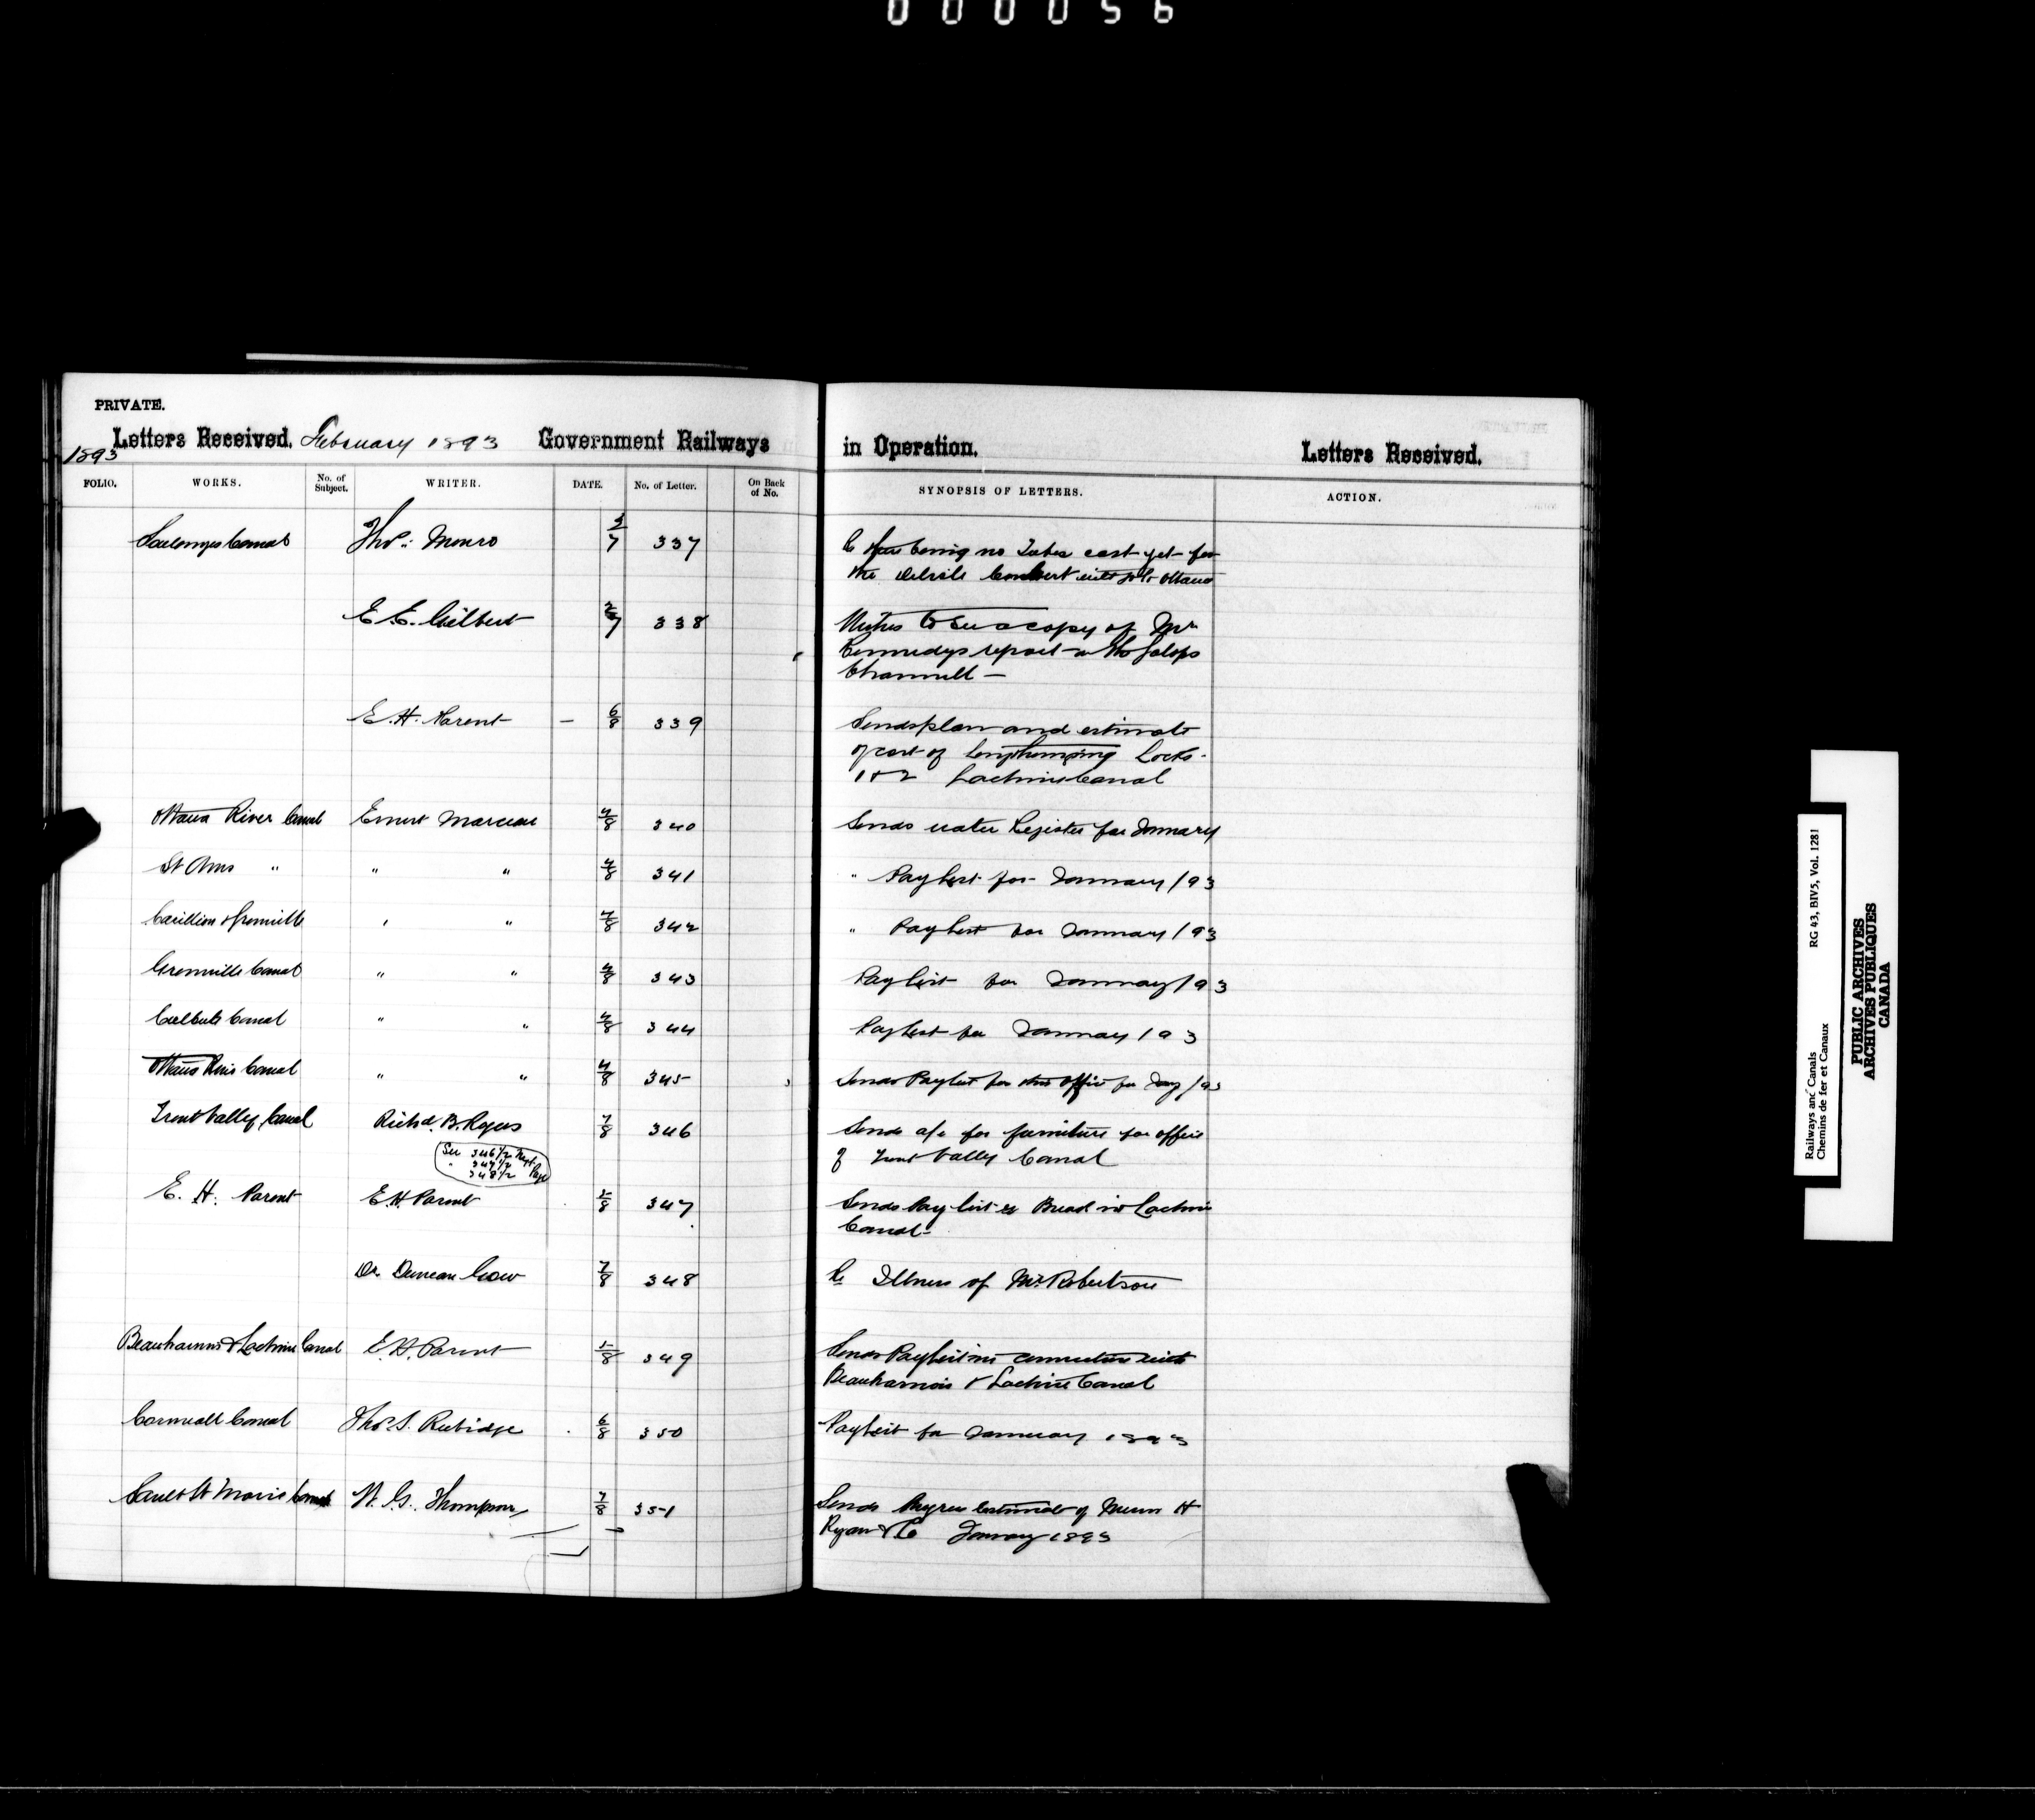 000056
PRIVATE.
Letters Received. February 1893 Government Railways in Operation. Letters Received.
1893
FOLIO. WORKS. No. of Subject. WRITER. DATE. No. of Letter. On Back of No. SYNOPSIS OF LETTERS. ACTION.
Soulanges Canal Thos. Monro 3/7 337 Re there being no Tubes cast yet for
the Delisle Culvert
E. E. Gilbert 338 Wishes to see a copy of Mr
Kennedys report on the Galops
Channell —
E. H. Parent – 6/8 339 Sends plan and estimate
of cost of Lengthening Locks
1 & 2 Lachine Canal
Ottawa River Canal Ernest Marceau 4/8 340 Sends water Register for January
St Anns " " " 4/8 341 " Paylist for January /93
Carillion & Grenville " " 4/8 342 " Paylist for January /93
Grenville Canal " " 4/8 343 Paylist for January /93
Culbute Canal " " 4/8 344 Paylist for January /93
Ottawa River Canal " " 4/8 345 Sends Paylist for this office for Jany /93
Trent Valley Canal Richd. B. Rogers 7/8 346 Sends a/c for furniture for office
of Trent Valley Canal
See 346 1/2 Next Page
" 347 1/2
348 1/2
E. H. Parent E. H. Parent 347 Sends Pay list re Break in Lachine
Canal
Dr. Duncan Gow 7/8 348 Re Illness of Mr. Robertson
Beauharnois & Lachine Canal E. H. Parent 349 Sends Paylist in connection with
Beauharnois & Lachine Canal
Cornwall Canal Thos. S. Rubidge 6/8 350 Paylist for January 1893
Sault St Marie Canal W. G. Thompson 7/8 351 Sends Progress Estimate of Messrs H
Ryan & Co January 1893
Railways and Canals RG 43, BIV5, Vol. 1281
Chemins de fer et Canaux
PUBLIC ARCHIVES
ARCHIVES PUBLIQUES
CANADA